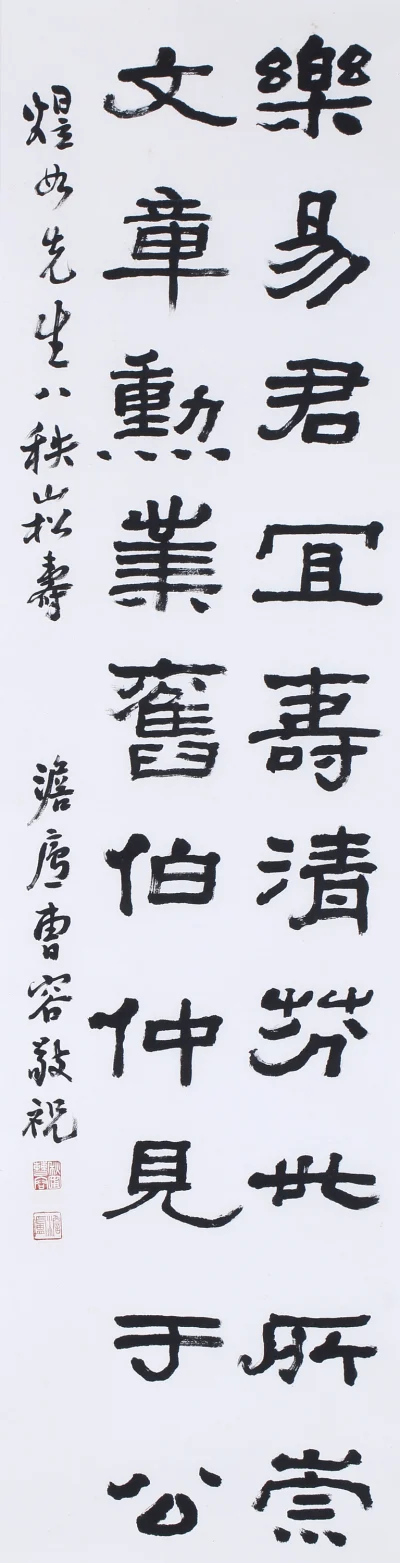 樂易君宜壽清芬世所崇
文章勳業舊伯仲見于公
如先生八秩崧壽
澹廬曹容敬祝